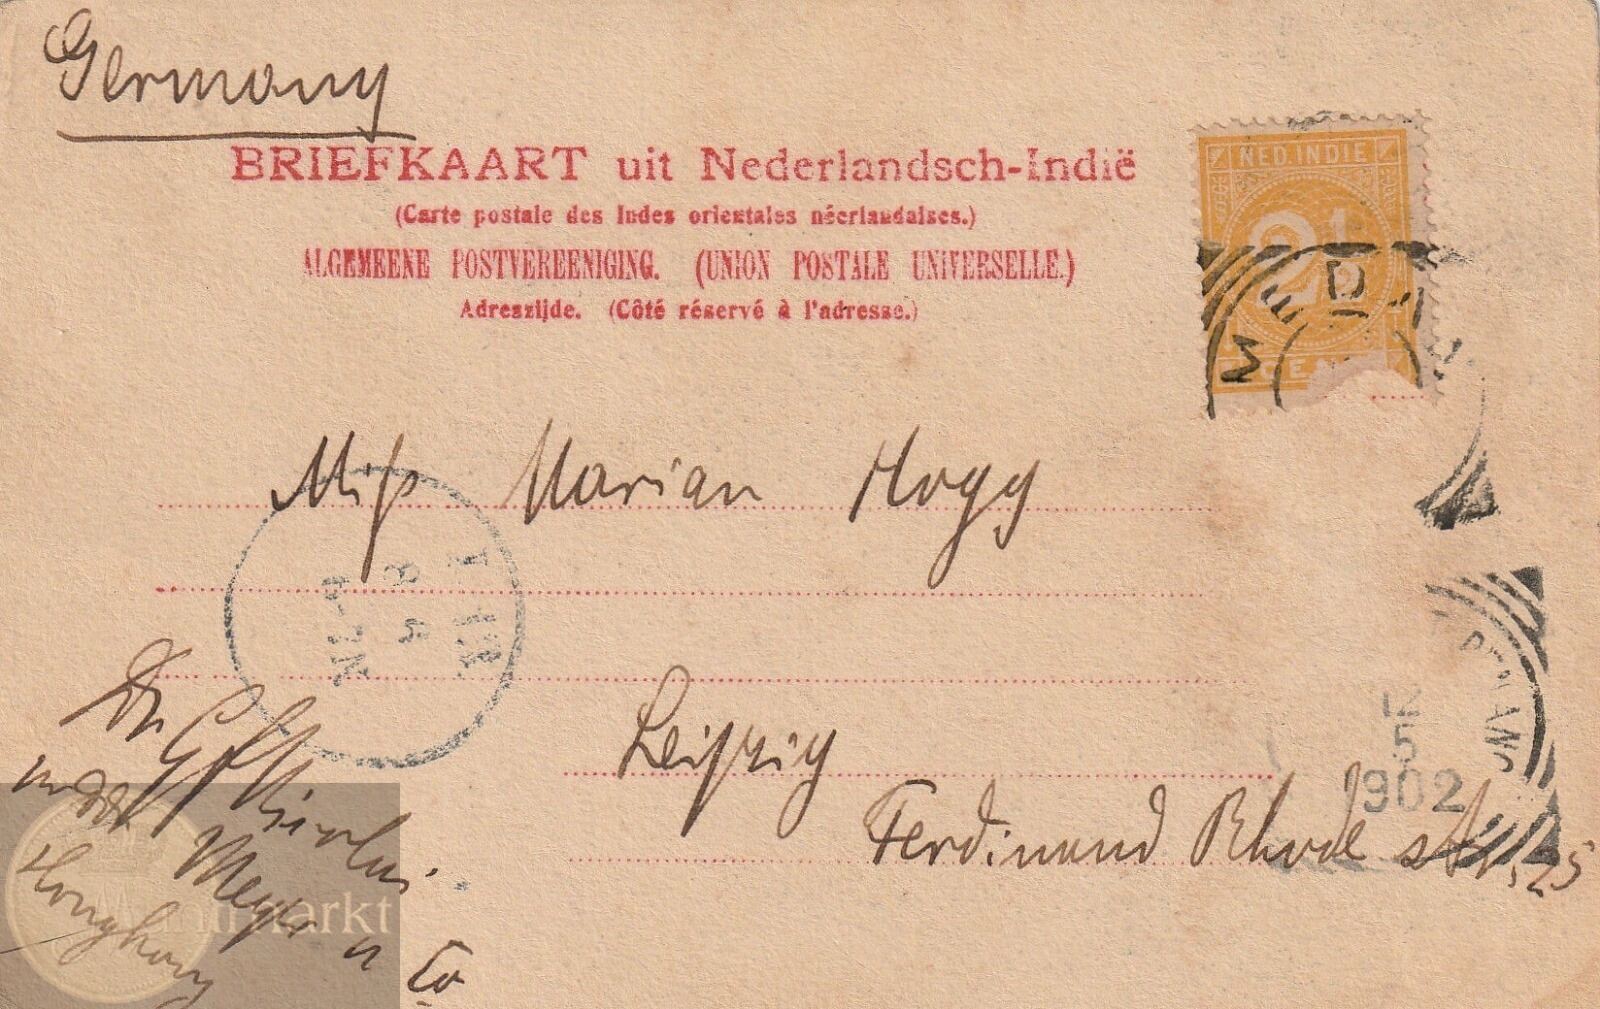 Germany
BRIEFKAART uit Nederlandsch-Indië
(Carte postale des Indes orientales néerlandaises.)
ALGEMEENE POSTVEREENIGING. (UNION POSTALE UNIVERSELLE.)
Adreszijde. (Côté réservé à l'adresse.)
NED. INDIE
2½
CENT
MEDAN
Miss Marian Hogg
Leipzig
Ferdinand Rhode str. 25
PENANG
12
5
1902
Dr
Meyer u Co
Hongkong